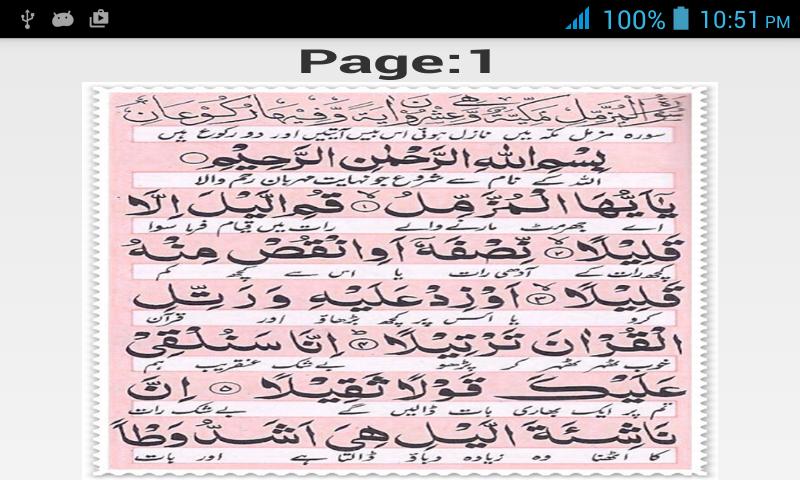 100% 10:51 PM
Page:1
سُوْرَةُ الْمُزَّمِّل مَكِّيَّةٌ وَّهِيَ عِشْرُوْنَ اٰيَةً وَّفِيْهَا رُكُوْعَانِ
سورہ مزمل مکہ میں نازل ہوئی اس میں بیس آیتیں اور دو رکوع ہیں
بِسْمِ اللّٰهِ الرَّحْمٰنِ الرَّحِيْمِ
اللہ کے نام سے شروع جو نہایت مہربان رحم والا
يٰٓاَيُّهَا الْمُزَّمِّلُ ۱ قُمِ الَّيْلَ اِلَّا
اے جھرمٹ مارنے والے رات میں قیام فرما سوا
قَلِيْلًا ۲ نِّصْفَهٗٓ اَوِانْقُصْ مِنْهُ
کچھ رات کے آدھی رات یا اس سے کچھ کم
قَلِيْلًا ۳ اَوْزِدْ عَلَيْهِ وَرَتِّلِ
کرو یا اس پر کچھ بڑھاؤ اور قرآن
الْقُرْاٰنَ تَرْتِيْلًا ۴ اِنَّا سَنُلْقِيْ
خوب ٹھہر ٹھہر کر پڑھو بے شک عنقریب ہم
عَلَيْكَ قَوْلًا ثَقِيْلًا ۵ اِنَّ
تم پر ایک بھاری بات ڈالیں گے بے شک رات
نَاشِئَةَ الَّيْلِ هِيَ اَشَدُّ وَطْاً
کا اٹھنا وہ زیادہ دباؤ ڈالتا ہے اور بات